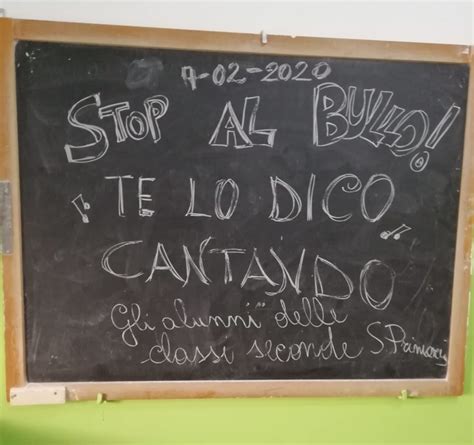 7-02-2020
STOP AL BULLO!
TE LO DICO
CANTANDO
Gli alunni delle
classi seconde S.